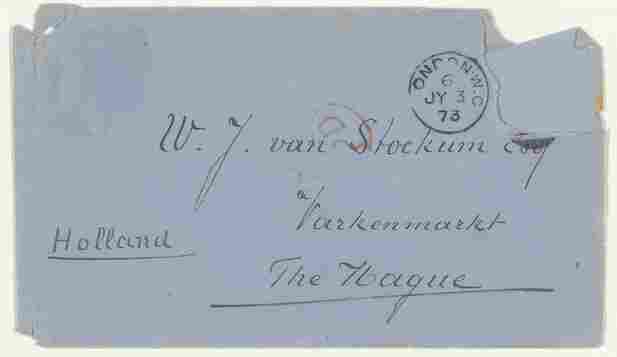 LONDON·W·C
6
JY 3
73
W. J. van Stockum Esq
a
Varkenmarkt
Holland
The Hague